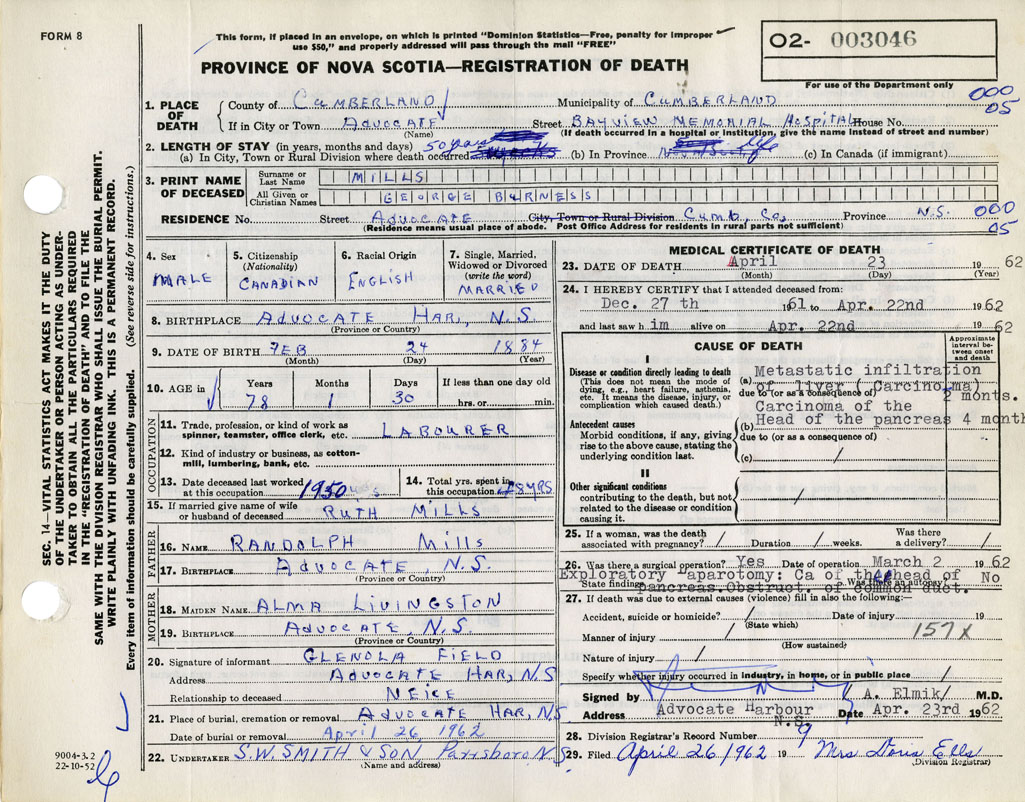 FORM 8
This form, if placed in an envelope, on which is printed "Dominion Statistics—Free, penalty for improper
use $50," and properly addressed will pass through the mail "FREE"
O2- 003046
For use of the Department only
PROVINCE OF NOVA SCOTIA—REGISTRATION OF DEATH
000
05
1. PLACE OF DEATH
County of CUMBERLAND Municipality of CUMBERLAND
If in City or Town ADVOCATE Street BAYVIEW MEMORIAL HOSPITAL House No.
(Name) (If death occurred in a hospital or institution, give the name instead of street and number)
2. LENGTH OF STAY (in years, months and days) 50 years
(a) In City, Town or Rural Division where death occurred (b) In Province life (c) In Canada (if immigrant)
3. PRINT NAME OF DECEASED
Surname or Last Name MILLS
All Given or Christian Names GEORGE BURNESS
RESIDENCE No. Street ADVOCATE City, Town or Rural Division CUMB. CO. Province N.S. 000
(Residence means usual place of abode. Post Office Address for residents in rural parts not sufficient) 05
4. Sex MALE
5. Citizenship (Nationality) CANADIAN
6. Racial Origin ENGLISH
7. Single, Married, Widowed or Divorced (write the word) MARRIED
8. BIRTHPLACE ADVOCATE HAR, N.S.
(Province or Country)
9. DATE OF BIRTH FEB 24 1884
(Month) (Day) (Year)
10. AGE in Years 78 Months 1 Days 30 If less than one day old hrs. or min.
OCCUPATION
11. Trade, profession, or kind of work as
spinner, teamster, office clerk, etc. LABOURER
12. Kind of industry or business, as cotton-
mill, lumbering, bank, etc.
13. Date deceased last worked at this occupation 1950
14. Total yrs. spent in this occupation 48 YRS
15. If married give name of wife
or husband of deceased RUTH MILLS
FATHER
16. NAME RANDOLPH MILLS
17. BIRTHPLACE ADVOCATE, N.S.
(Province or Country)
MOTHER
18. MAIDEN NAME ALMA LIVINGSTON
19. BIRTHPLACE ADVOCATE, N.S.
(Province or Country)
20. Signature of informant GLENOLA FIELD
Address ADVOCATE HAR, N.S
Relationship to deceased NEICE
21. Place of burial, cremation or removal ADVOCATE HAR, NS
Date of burial or removal April 26, 1962
22. UNDERTAKER S.W. SMITH & SON, Parrsboro N.S.
(Name and address)
MEDICAL CERTIFICATE OF DEATH
23. DATE OF DEATH April 23 1962
(Month) (Day) (Year)
24. I HEREBY CERTIFY that I attended deceased from:
Dec. 27 th 1961 to Apr. 22nd 1962
and last saw h im alive on Apr. 22nd 1962
CAUSE OF DEATH
Approximate interval between onset and death
I
Disease or condition directly leading to death
(This does not mean the mode of
dying, e.g., heart failure, asthenia,
etc. It means the disease, injury, or
complication which caused death.)
(a) Metastatic infiltration
of liver (Carcinoma) 2 monts.
due to (or as a consequence of)
Antecedent causes
Morbid conditions, if any, giving
rise to the above cause, stating the
underlying condition last.
(b) Carcinoma of the
Head of the pancreas 4 month
due to (or as a consequence of)
(c) /
II
Other significant conditions
contributing to the death, but not
related to the disease or condition
causing it.
/
25. If a woman, was the death
associated with pregnancy? / Duration / weeks. Was there a delivery? /
26. Was there a surgical operation? Yes Date of operation March 2 1962
State findings Exploratory Laparotomy: Ca of the head of
pancreas. Obstruct. of common duct.
Was there an autopsy? No
27. If death was due to external causes (violence) fill in also the following:—
Accident, suicide or homicide? / Date of injury 19
(State which)
157 x
Manner of injury /
(How sustained)
Nature of injury /
Specify whether injury occurred in industry, in home, or in public place /
Signed by A. Elmik/ M.D.
Address Advocate Harbour N.S. Date Apr. 23rd 1962
28. Division Registrar's Record Number 9
29. Filed April 26/1962 19 Mrs Doris Ells
(Division Registrar)
SEC. 14—VITAL STATISTICS ACT MAKES IT THE DUTY
OF THE UNDERTAKER OR PERSON ACTING AS UNDER-
TAKER TO OBTAIN ALL THE PARTICULARS REQUIRED
IN THE "REGISTRATION OF DEATH" AND TO FILE THE
SAME WITH THE DIVISION REGISTRAR WHO SHALL ISSUE THE BURIAL PERMIT.
WRITE PLAINLY WITH UNFADING INK. THIS IS A PERMANENT RECORD.
Every item of information should be carefully supplied. (See reverse side for instructions.)
9004-3.2
22-10-52